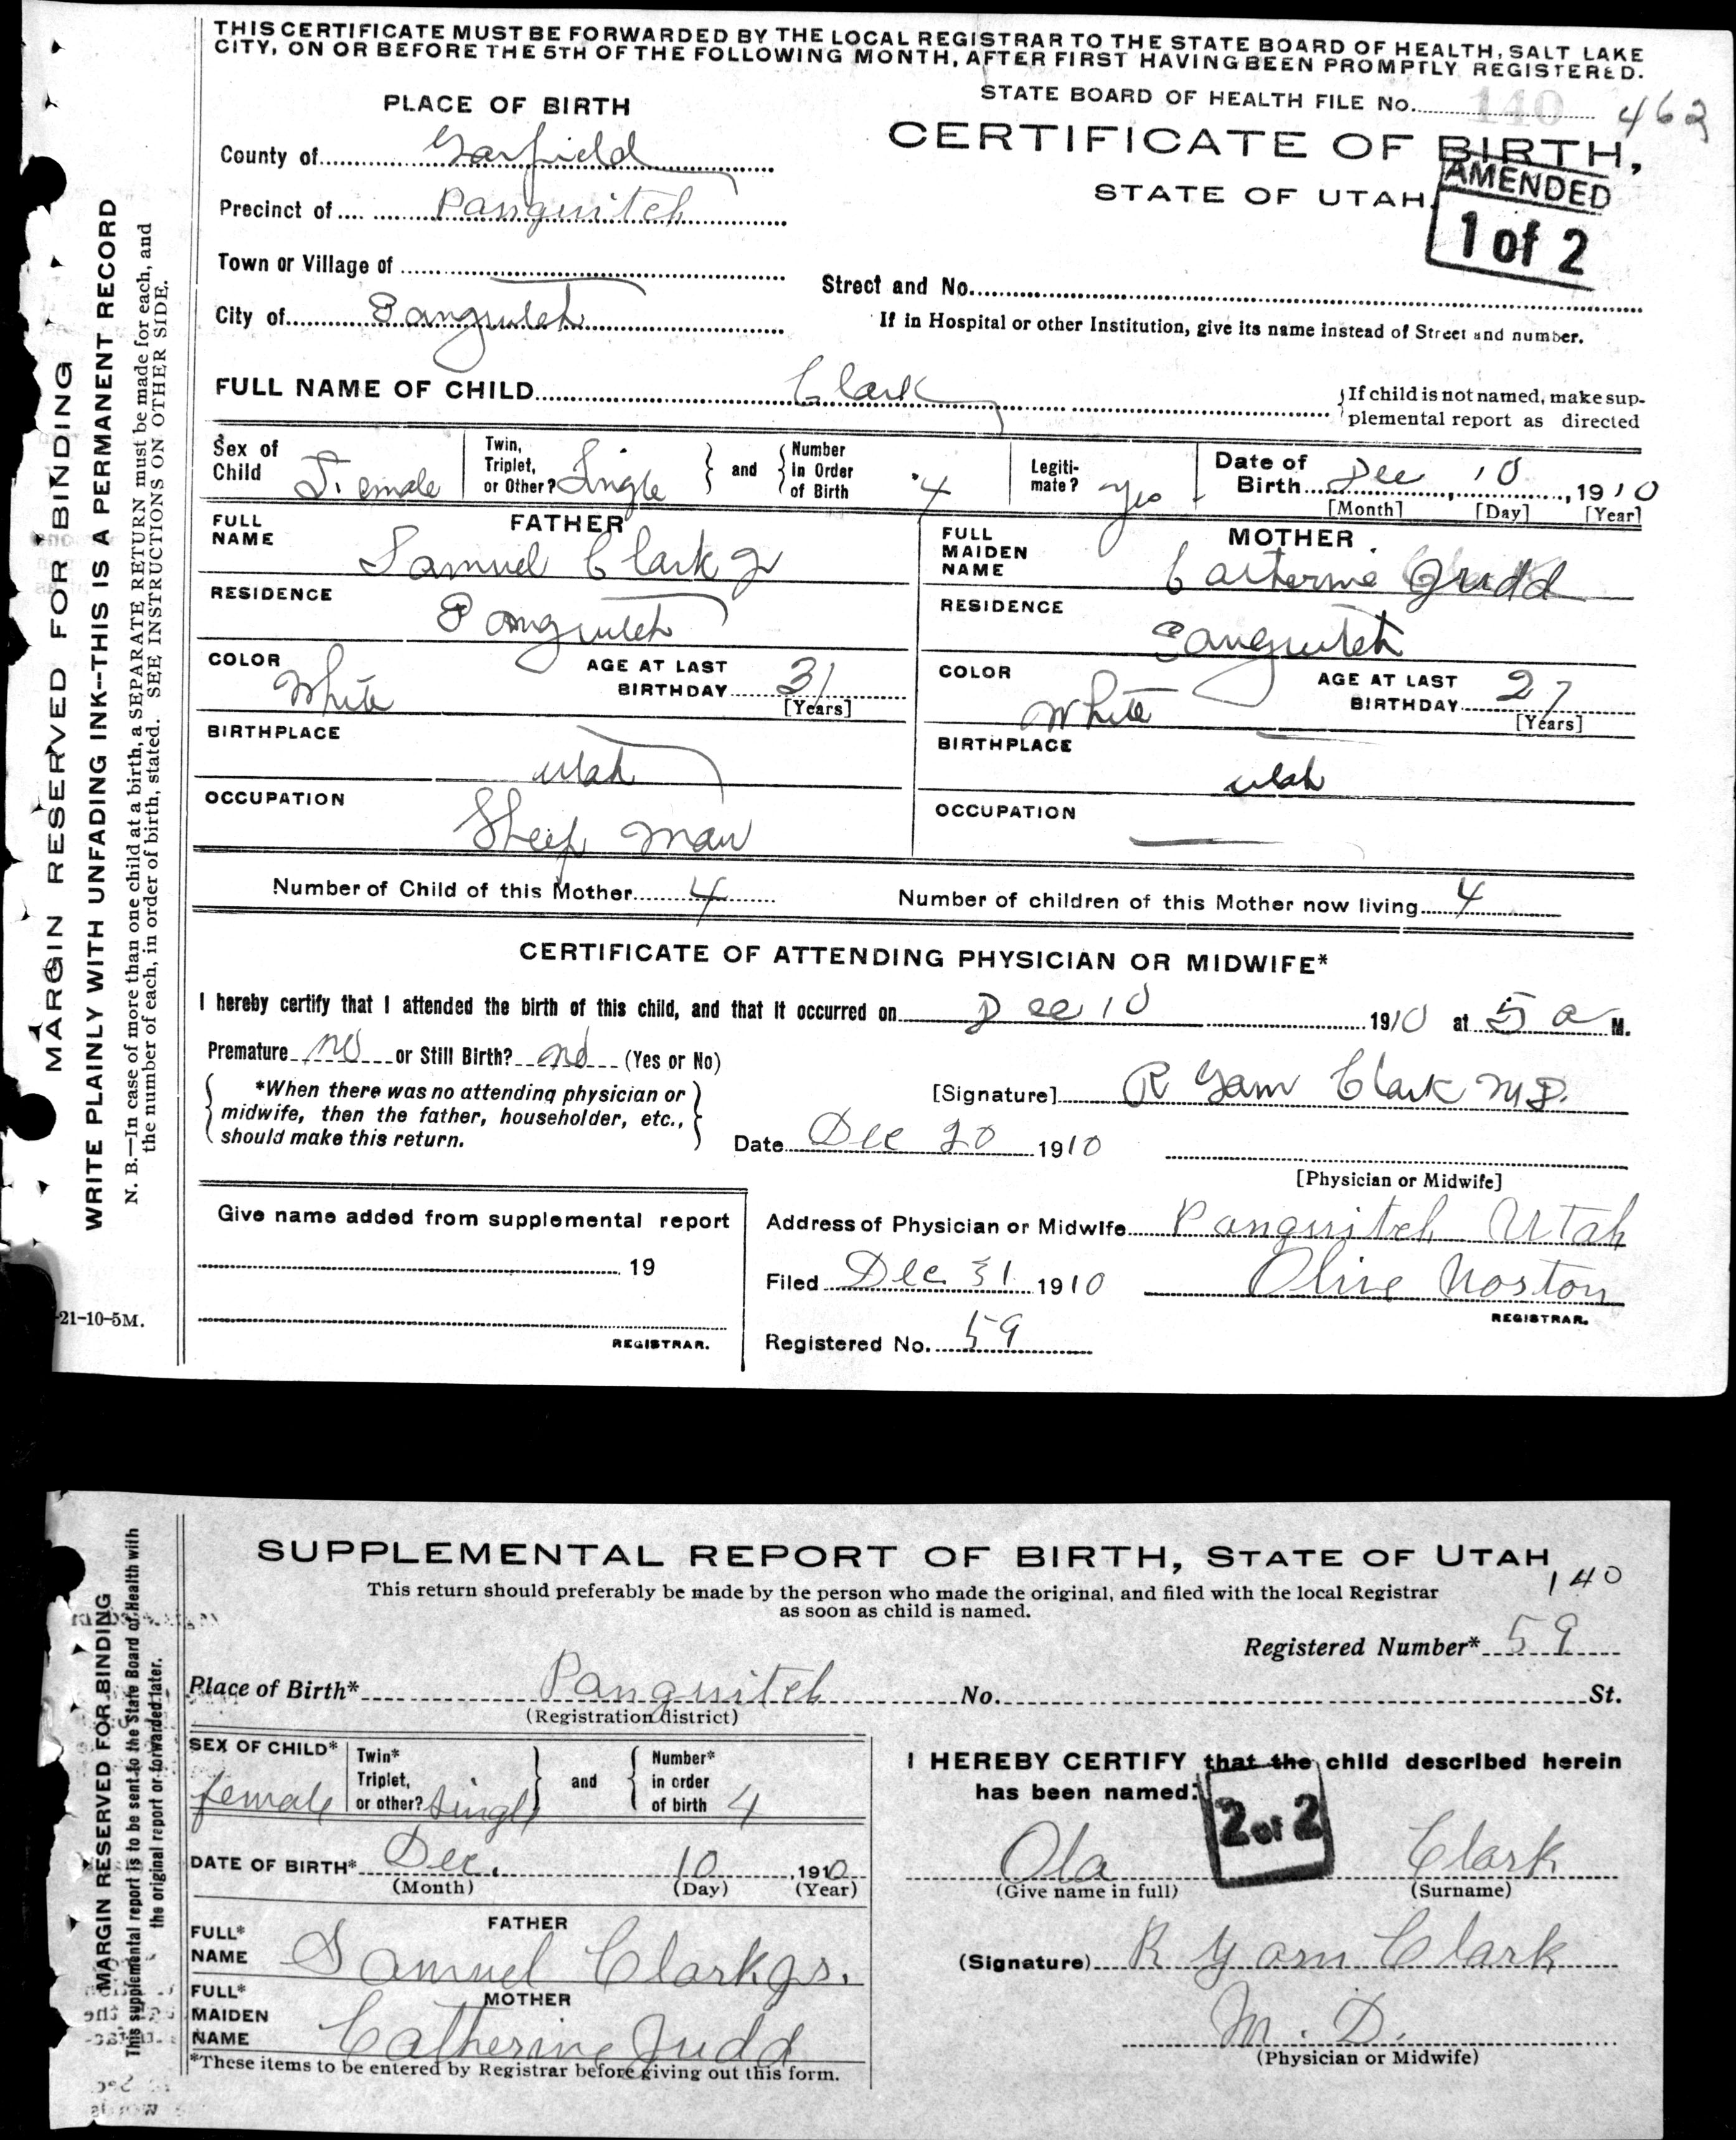 THIS CERTIFICATE MUST BE FORWARDED BY THE LOCAL REGISTRAR TO THE STATE BOARD OF HEALTH, SALT LAKE
CITY, ON OR BEFORE THE 5TH OF THE FOLLOWING MONTH, AFTER FIRST HAVING BEEN PROMPTLY REGISTERED.
PLACE OF BIRTH
STATE BOARD OF HEALTH FILE No. 140 462
CERTIFICATE OF BIRTH,
STATE OF UTAH.
AMENDED
1 of 2
County of Garfield
Precinct of Panguitch
Town or Village of
Street and No.
City of Panguitch
If in Hospital or other Institution, give its name instead of Street and number.
FULL NAME OF CHILD Clark
If child is not named, make sup-
plemental report as directed
Sex of Child Female
Twin, Triplet, or Other? Single and Number in Order of Birth 4
Legiti-mate? yes
Date of Birth Dec 10, 1910
[Month] [Day] [Year]
FATHER
FULL NAME Samuel Clark Jr
MOTHER
FULL MAIDEN NAME Catherine Judd
RESIDENCE Panguitch
RESIDENCE Panguitch
COLOR White AGE AT LAST BIRTHDAY 31 [Years]
COLOR White AGE AT LAST BIRTHDAY 27 [Years]
BIRTHPLACE Utah
BIRTHPLACE Utah
OCCUPATION Sheep man
OCCUPATION
Number of Child of this Mother 4 Number of children of this Mother now living 4
CERTIFICATE OF ATTENDING PHYSICIAN OR MIDWIFE*
I hereby certify that I attended the birth of this child, and that it occurred on Dec 10 1910 at 5 a M.
Premature no or Still Birth? no (Yes or No)
*When there was no attending physician or
midwife, then the father, householder, etc.,
should make this return.
[Signature] R Garn Clark M.D.
Date Dec 20 1910
[Physician or Midwife]
Give name added from supplemental report
19
REGISTRAR.
Address of Physician or Midwife Panguitch Utah
Filed Dec. 31 1910 Olive Norton
REGISTRAR.
Registered No. 59
MARGIN RESERVED FOR BINDING
WRITE PLAINLY WITH UNFADING INK--THIS IS A PERMANENT RECORD
N. B.—In case of more than one child at a birth, a SEPARATE RETURN must be made for each, and
the number of each, in order of birth, stated. SEE INSTRUCTIONS ON OTHER SIDE.
-21-10-5M.
SUPPLEMENTAL REPORT OF BIRTH, STATE OF UTAH
140
This return should preferably be made by the person who made the original, and filed with the local Registrar
as soon as child is named.
Registered Number* 59
Place of Birth* Panguitch No. St.
(Registration district)
SEX OF CHILD* female
Twin* Triplet, or other? Single and Number* in order of birth 4
I HEREBY CERTIFY that the child described herein
has been named:
2 of 2
DATE OF BIRTH* Dec. 10, 1910
(Month) (Day) (Year)
Ola Clark
(Give name in full) (Surname)
FATHER
FULL* NAME Samuel Clark Jr.
(Signature) R Garn Clark
MOTHER
FULL* MAIDEN NAME Catherine Judd
M. D.
(Physician or Midwife)
*These items to be entered by Registrar before giving out this form.
MARGIN RESERVED FOR BINDING
This supplemental report is to be sent to the State Board of Health with
the original report or forwarded later.